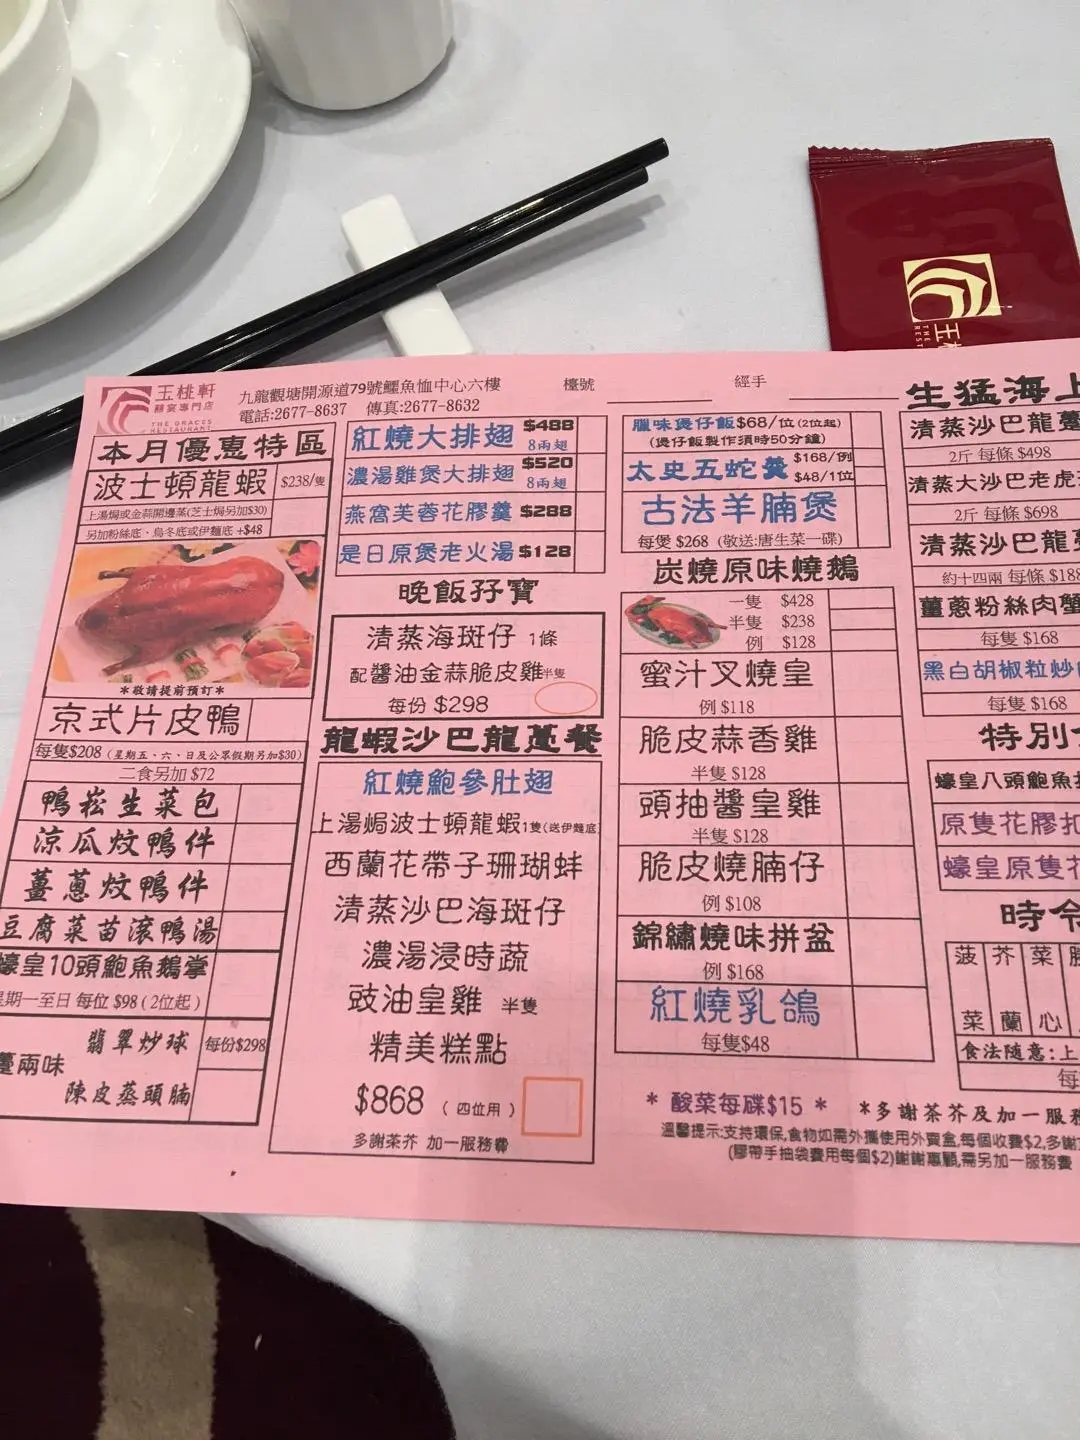 玉桃軒
THE
REST
玉桃軒
囍宴專門店
THE GRACES
RESTAURANT
九龍觀塘開源道79號鱷魚恤中心六樓
電話:2677-8637 傳真:2677-8632
檯號
經手
本月優惠特區
波士頓龍蝦 $238/隻
上湯焗或金蒜開邊蒸(芝士焗另加$30)
另加粉絲底、烏冬底或伊麵底 +$48
*敬請提前預訂*
京式片皮鴨
每隻$208 (星期五、六、日及公眾假期另加$30)
二食另加 $72
鴨崧生菜包
涼瓜炆鴨件
薑蔥炆鴨件
豆腐菜苗滾鴨湯
蠔皇10頭鮑魚鵝掌
星期一至日 每位 $98 (2位起)
躉兩味
翡翠炒球
陳皮蒸頭腩
每份$298
紅燒大排翅 $488
8兩翅
濃湯雞煲大排翅 $520
8兩翅
燕窩芙蓉花膠羹 $288
是日原煲老火湯 $128
晚飯孖寶
清蒸海斑仔 1條
配醬油金蒜脆皮雞半隻
每份 $298
龍蝦沙巴龍躉餐
紅燒鮑參肚翅
上湯焗波士頓龍蝦1隻(送伊麵底)
西蘭花帶子珊瑚蚌
清蒸沙巴海斑仔
濃湯浸時蔬
豉油皇雞 半隻
精美糕點
$868 (四位用)
多謝茶芥 加一服務費
臘味煲仔飯$68/位(2位起)
(煲仔飯製作須時50分鐘)
太史五蛇羹 $168/例
$48/1位
古法羊腩煲
每煲 $268 (敬送:唐生菜一碟)
炭燒原味燒鵝
一隻 $428
半隻 $238
例 $128
蜜汁叉燒皇
例 $118
脆皮蒜香雞
半隻 $128
頭抽醬皇雞
半隻 $128
脆皮燒腩仔
例 $108
錦繡燒味拼盆
例 $168
紅燒乳鴿
每隻$48
* 酸菜每碟$15 *
*多謝茶芥及加一服務
溫馨提示:支持環保,食物如需外攜使用外賣盒,每個收費$2,多謝
(膠帶手抽袋費用每個$2)謝謝惠顧,需另加一服務費
生猛海上
清蒸沙巴龍躉
2斤 每條 $498
清蒸大沙巴老虎
2斤 每條 $698
清蒸沙巴龍躉
約十四兩 每條 $188
薑蔥粉絲肉蟹
每隻 $168
黑白胡椒粒炒肉
每隻 $168
特別
蠔皇八頭鮑魚
原隻花膠扣
蠔皇原隻花
時令
菠菜
芥蘭
菜心
食法隨意:上
每